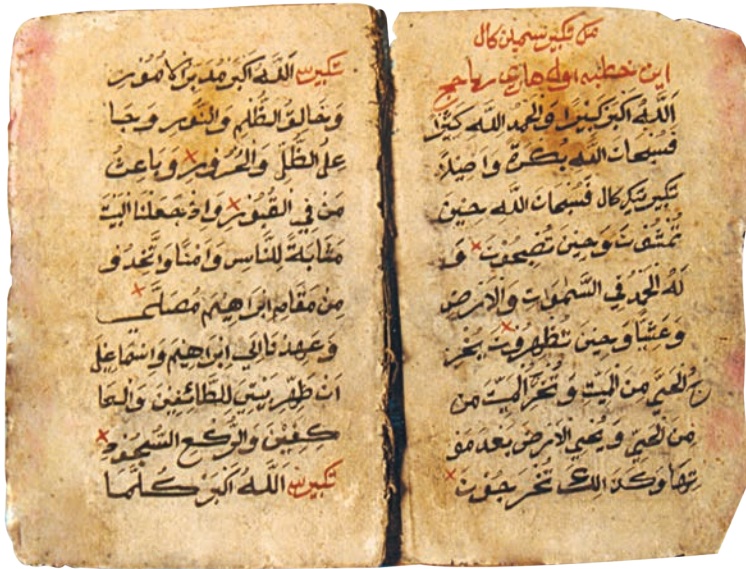 مك تكبير سمبيلن كال
اين خطبه اوله هاري رياحج
اَللّٰهُ اَكْبَرُ كَبِيْرًا وَالْحَمْدُ اللّٰهِ كَثِيْرًا
فَسُبْحَانَ اللّٰهِ بُكْرَةً وَاَصِيْلًا
تكبير تيڬ كال فَسُبْحَانَ اللّٰهِ حِيْنَ
تُمْسُوْنَ وَحِيْنَ تُصْبِحُوْنَ وَ
لَهُ الْحَمْدُ فِي السَّمٰوَاتِ وَالْاَرْضِ
وَعَشِيًّا وَحِيْنَ تُظْهِرُوْنَ يُخْرِ
جُ الْحَيَّ مِنَ الْمَيِّتِ وَ تُخْرِجُ الْمَيِّتَ مِنَ
مِنَ الْحَيِّ وَ يُحْيِي الْاَرْضَ بَعْدَ مَوْ
تِهَا وَكَذَالِكَ تُخْرَجُوْنَ
تكبير س اَللّٰهُ اَكْبَرُ مُدَبِّرَ الْاُمُوْرِ
وَخَالِقُ الظُّلَمِ وَالنُّوْرِ وَجَا
عِلُ الظِّلِّ وَالْحُرُوْرِ وَبَاعِثُ
مَنْ فِي الْقُبُوْرِ وَاِذْ جَعَلْنَا الْبَيْتَ
مَثَابَةً لِلنَّاسِ وَاَمْنًا وَاتَّخِذُوْ
مِنْ مَقَامِ اِبْرَاهِيْمَ مُصَلًّى
وَعَهِدْنَا اِلَى اِبْرَاهِيْمَ وَاِسْمَاعِيْلَ
اَنْ طَهِّرَ بَيْتِيَ لِلطَّائِفِيْنَ وَالْعَا
كِفِيْنَ وَالرُّكَّعِ السُّجُوْدِ
تكبير س اَللّٰهُ اَكْبَرُ كُلَّمَا